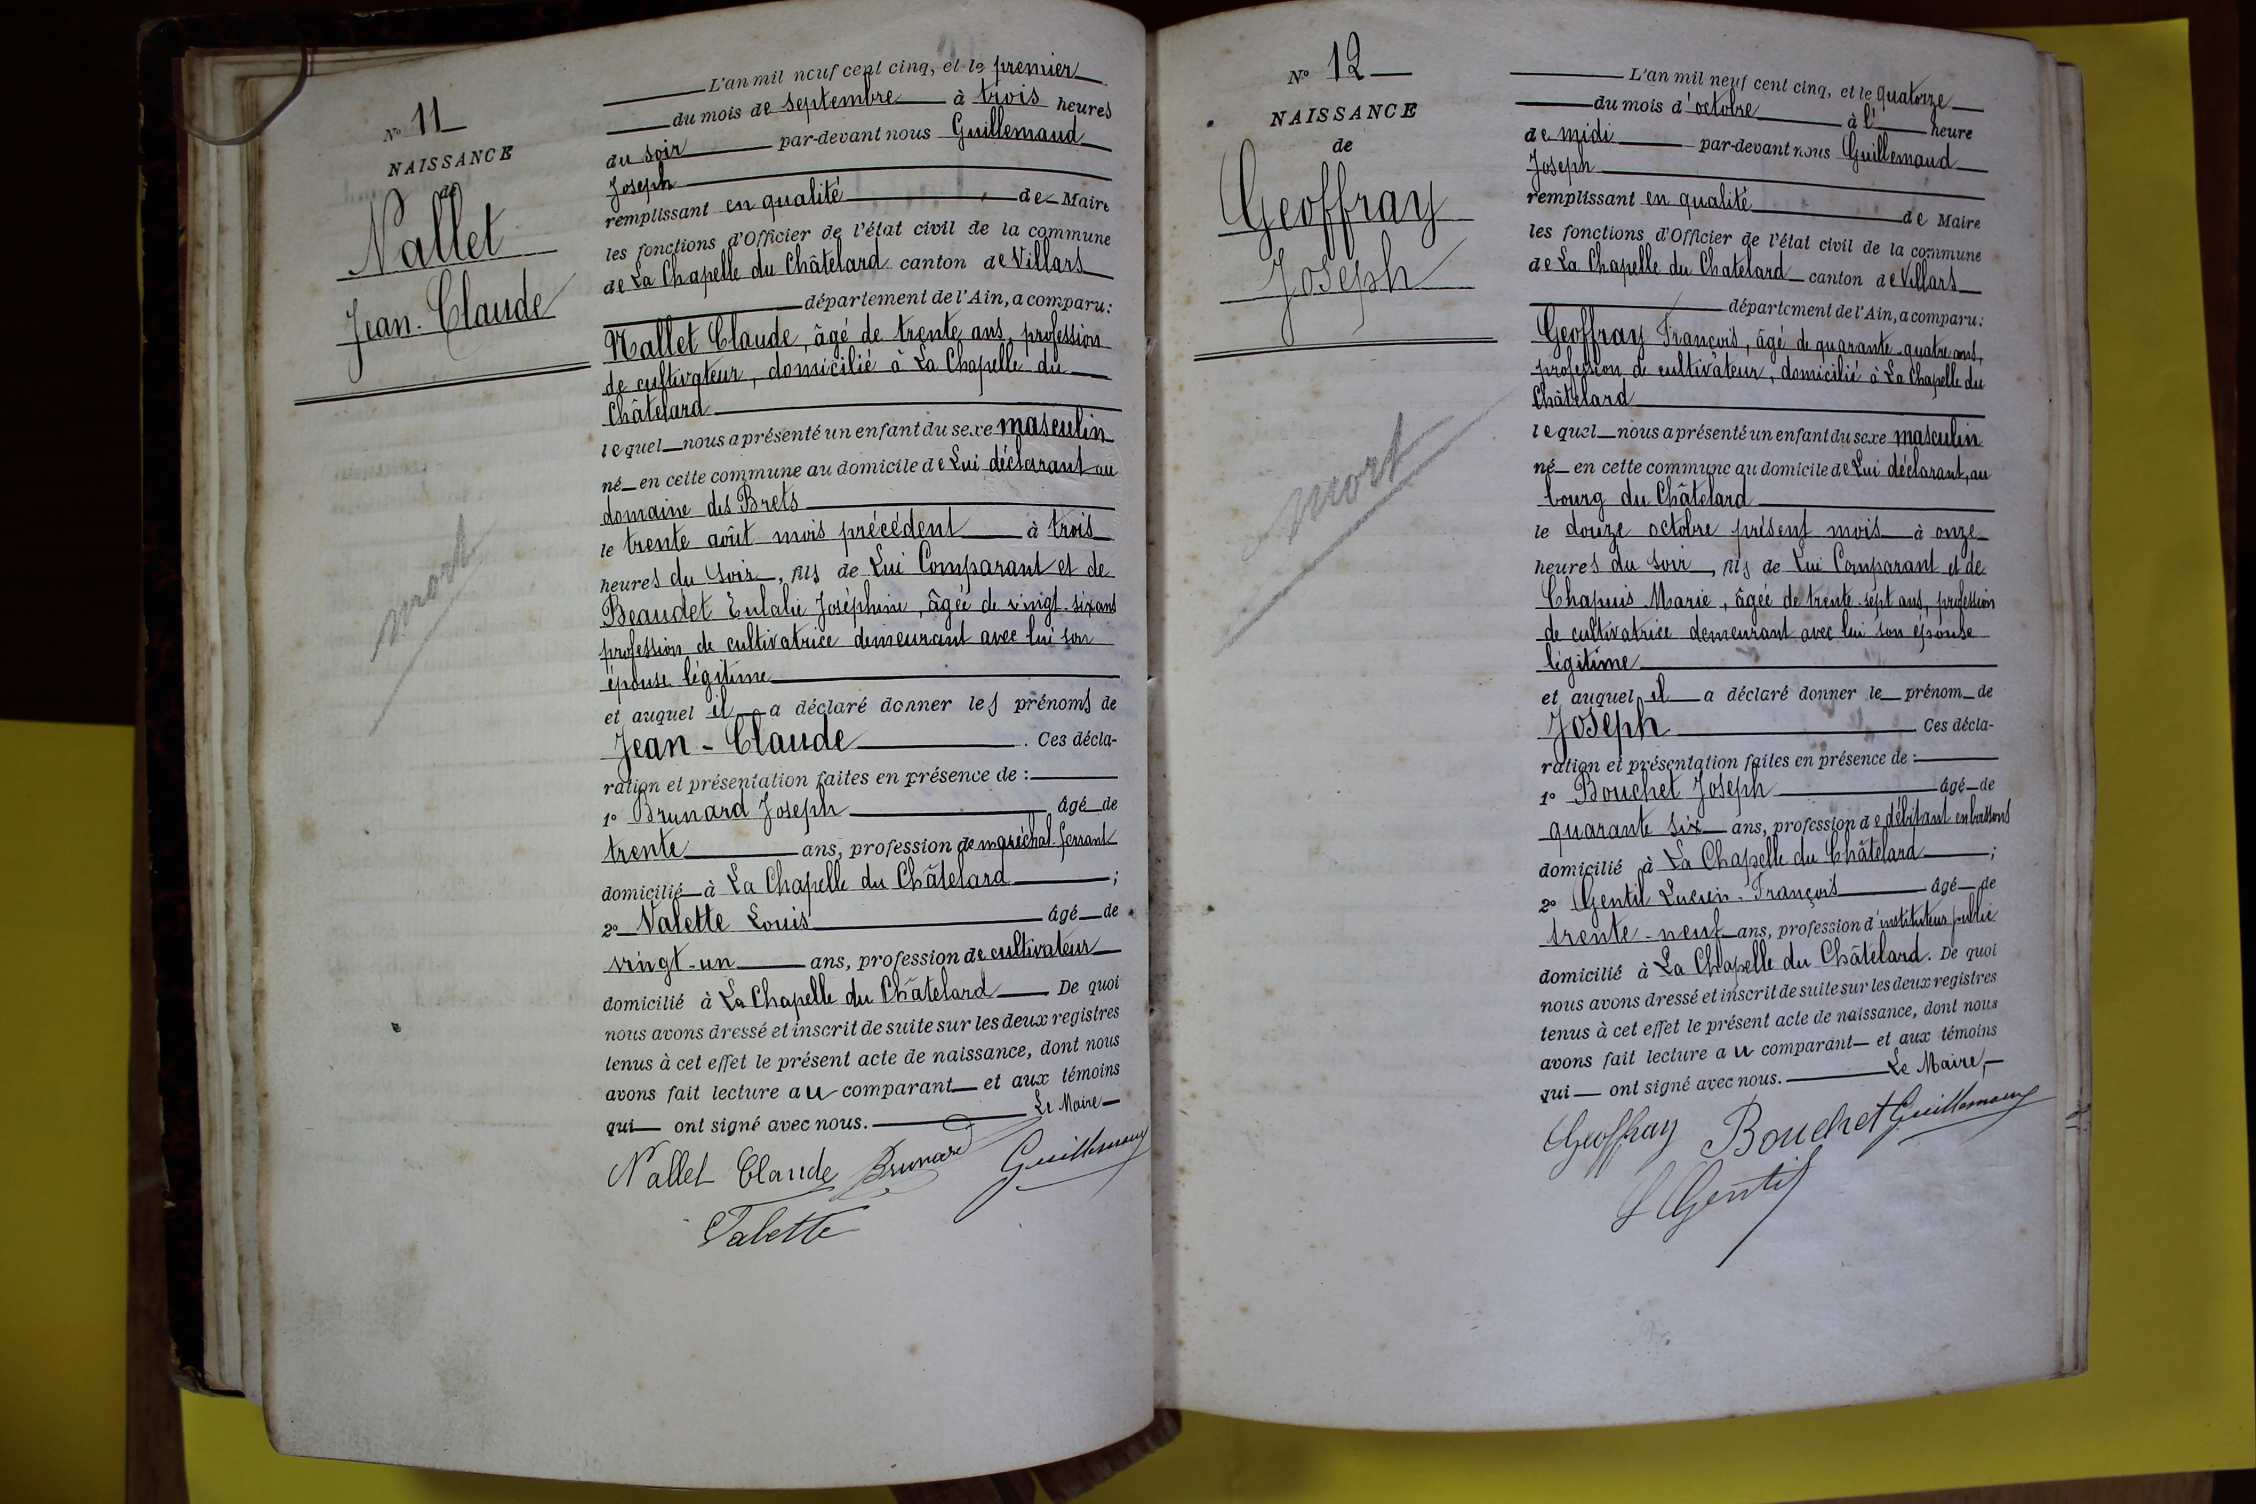 N° 11
NAISSANCE
de
Nallet
Jean-Claude
mort
L'an mil neuf cent cinq, et le premier
du mois de septembre à trois heures
du soir par-devant nous Guillemaud
Joseph
remplissant en qualité de Maire
les fonctions d'Officier de l'état civil de la commune
de La Chapelle du Châtelard canton de Villars
département de l'Ain, a comparu :
Nallet Claude, âgé de trente ans, profession
de cultivateur, domicilié à La Chapelle du
Châtelard
lequel nous a présenté un enfant du sexe masculin
né en cette commune au domicile de Lui déclarant au
domaine des Brets
le trente août mois précédent à trois
heures du soir, fils de Lui Comparant et de
Beaudet Eulalie Joséphine, âgée de vingt-six ans
profession de cultivatrice demeurant avec lui son
épouse légitime
et auquel il a déclaré donner les prénoms de
Jean-Claude. Ces décla-
ration et présentation faites en présence de :
1° Brunard Joseph âgé de
trente ans, profession de maréchal-ferrant
domicilié à La Chapelle du Châtelard ;
2° Valette Louis âgé de
vingt-un ans, profession de cultivateur
domicilié à La Chapelle du Châtelard De quoi
nous avons dressé et inscrit de suite sur les deux registres
tenus à cet effet le présent acte de naissance, dont nous
avons fait lecture au comparant et aux témoins
qui ont signé avec nous. Le Maire
Nallet Claude Brunard Guillemaud
Valette
N° 12
NAISSANCE
de
Geoffray
Joseph
mort
L'an mil neuf cent cinq, et le quatorze
du mois d'octobre à l' heure
de midi par-devant nous Guillemaud
Joseph
remplissant en qualité de Maire
les fonctions d'Officier de l'état civil de la commune
de La Chapelle du Chatelard canton de Villars
département de l'Ain, a comparu :
Geoffray François, âgé de quarante-quatre ans,
profession de cultivateur, domicilié à La Chapelle du
Châtelard
lequel nous a présenté un enfant du sexe masculin
né en cette commune au domicile de Lui déclarant, au
bourg du Châtelard
le douze octobre présent mois à onze
heures du soir, fils de Lui Comparant et de
Chapuis Marie, âgée de trente-sept ans, profession
de cultivatrice demeurant avec lui son épouse
légitime
et auquel il a déclaré donner le prénom de
Joseph Ces décla-
ration et présentation faites en présence de :
1° Bouchet Joseph âgé de
quarante six ans, profession de débitant en boissons
domicilié à La Chapelle du Châtelard ;
2° Gentil Lucien-François âgé de
trente-neuf ans, profession d'instituteur public
domicilié à La Chapelle du Châtelard. De quoi
nous avons dressé et inscrit de suite sur les deux registres
tenus à cet effet le présent acte de naissance, dont nous
avons fait lecture au comparant et aux témoins
qui ont signé avec nous. Le Maire,
Geoffray Bouchet Guillemaud
L Gentil